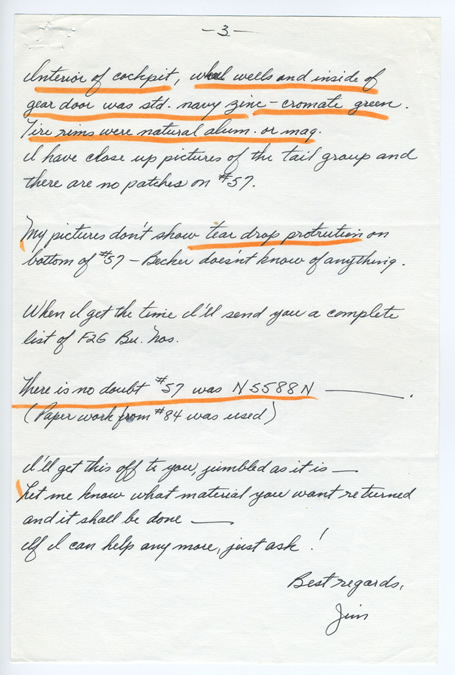 - 3. -
Interior of cockpit, wheel wells and inside of
gear door was std. navy zinc - cromate green.
Tire rims were natural alum. or mag.
I have close up pictures of the tail group and
there are no patches on #57.
My pictures don't show tear drop protrution on
bottom of #57 - Becker doesn't know of anything.
When I get the time I'll send you a complete
list of F2G Bu. Nos.
There is no doubt #57 was N5588N ———.
(Paper work from #84 was used)
I'll get this off to you, jumbled as it is —
Let me know what material you want returned
and it shall be done —
If I can help any more, just ask!
Best regards,
Jim